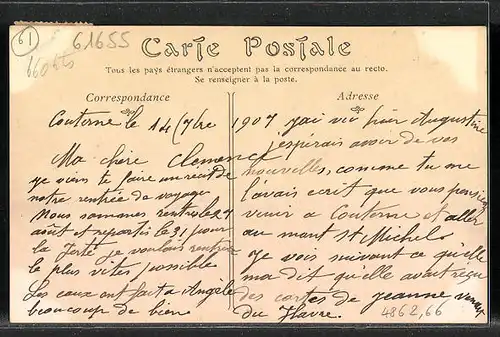 61
61655
660 cts
Carte Postale
Tous les pays étrangers n'acceptent pas la correspondance au recto.
Se renseigner à la poste.
Correspondance
Adresse
Couterne le 14 (7bre 1907
Ma chère Clemence
je viens te faire un récit de
notre rentrée de voyage
Nous sommes rentrés le 27
août et repartis le 31 pour
la Ferté je voulais rentrer
le plus vites possible
Les eaux ont fait a Angele
beaucoup de bien
j'ai vu hier Augustine
j'espérais avoir de vos
nouvelles, comme tu me
l'avais ecrit que vous pensiez
venir a Couterne et aller
au mont St Michel
je vois suivant ce qu'elle
ma dit qu'elle avait reçu
des cartes de jeanne venant
du Havre.
4862,66